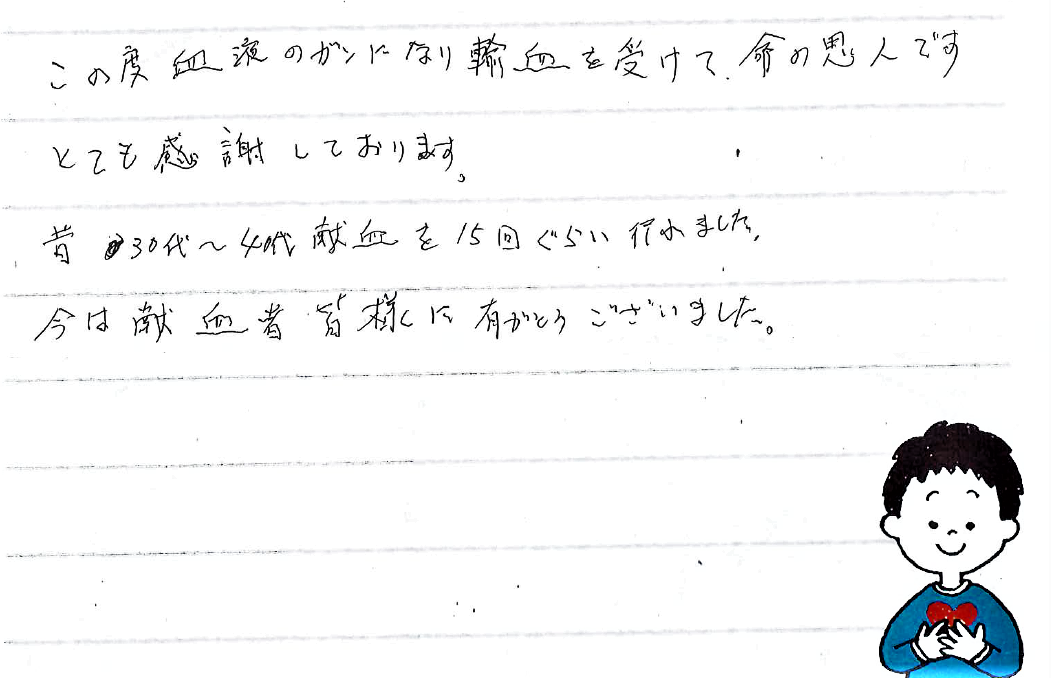 この度血液のガンになり輸血を受けて、命の恩人です
とても感謝しております。
昔30代～40代献血を15回ぐらい行れました、
今は献血者皆様に有がとうございました。